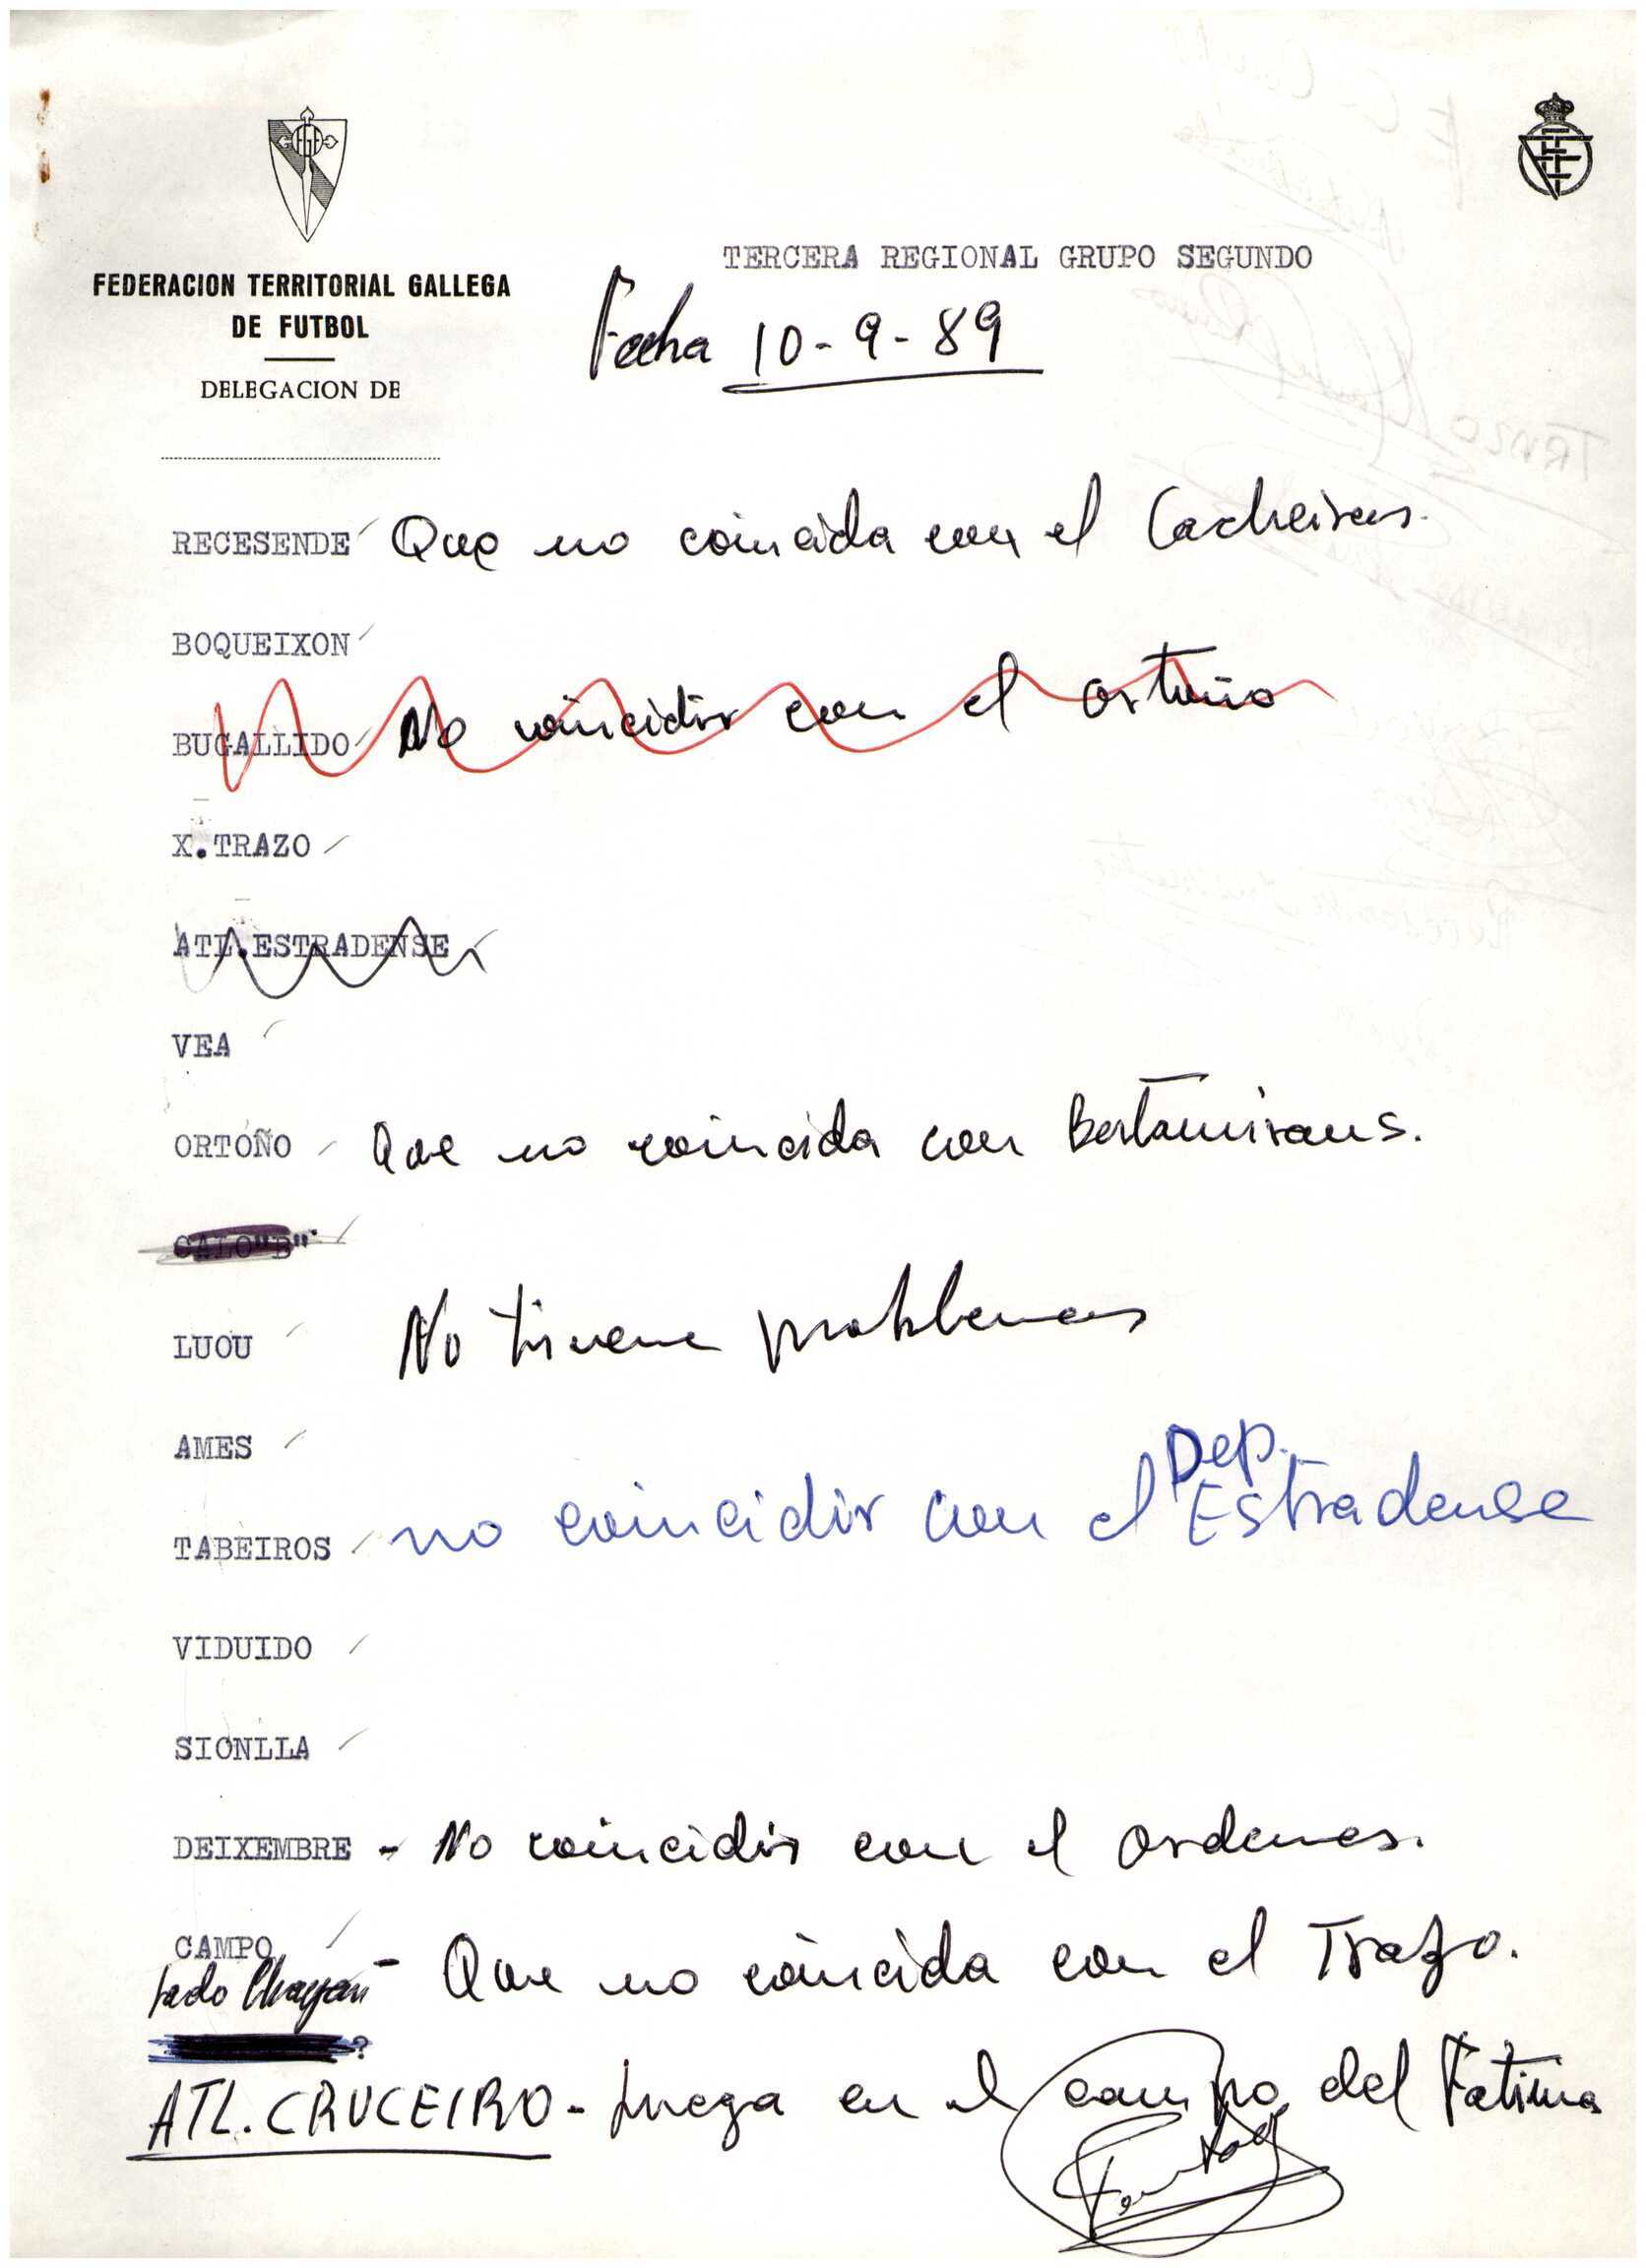 FEDERACION TERRITORIAL GALLEGA
DE FUTBOL
DELEGACION DE
TERCERA REGIONAL GRUPO SEGUNDO
Fecha 10-9-89
RECESENDE Que no coincida con el Cacheiras.
BOQUEIXON
BUGALLIDO No coincidir con el Ortoño
X.TRAZO
ATL.ESTRADENSE
VEA
ORTOÑO Que no coincida con Bertamirans.
CALO"B"
LUOU No tienen problemas
AMES
TABEIROS no coincidir con el Dep. Estradense
VIDUIDO
SIONLLA
DEIXEMBRE - No coincidir con el Ordenes.
CAMPO
lado Chayan - Que no coincida con el Trazo.
?
ATL. CRUCEIRO - Juega en el campo del Fatima